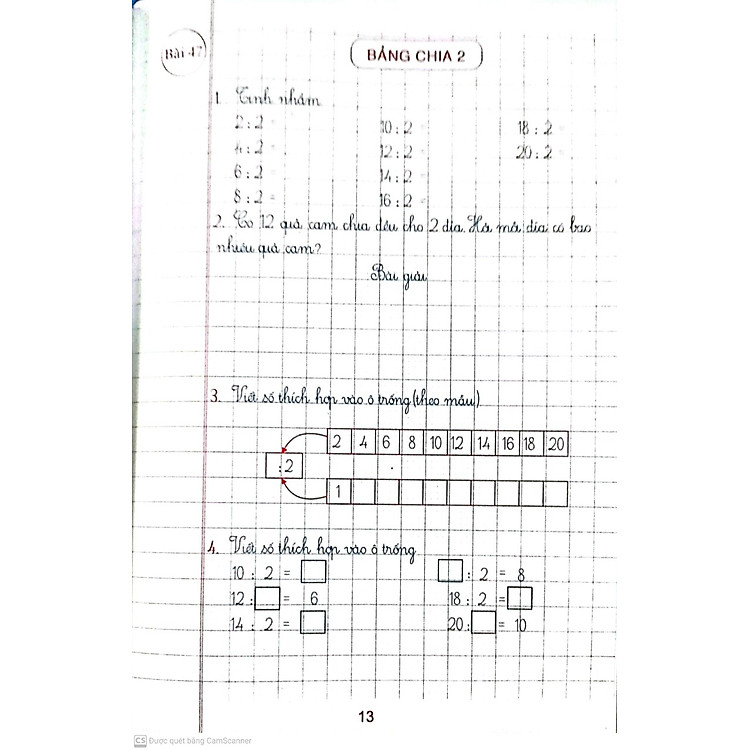 Bài 47
BẢNG CHIA 2
1. Tính nhẩm
2 : 2 = 10 : 2 = 18 : 2 =
4 : 2 = 12 : 2 = 20 : 2 =
6 : 2 14 : 2 =
8 : 2 = 16 : 2 =
2. Có 12 quả cam chia đều cho 2 đĩa. Hỏi mỗi đĩa có bao
nhiêu quả cam?
Bài giải
3. Viết số thích hợp vào ô trống (theo mẫu)
2 4 6 8 10 12 14 16 18 20
: 2
1
4. Viết số thích hợp vào ô trống
10 : 2 = : 2 = 8
12 : = 6 18 : 2 =
14 : 2 = 20 : = 10
13
CS Được quét bằng CamScanner